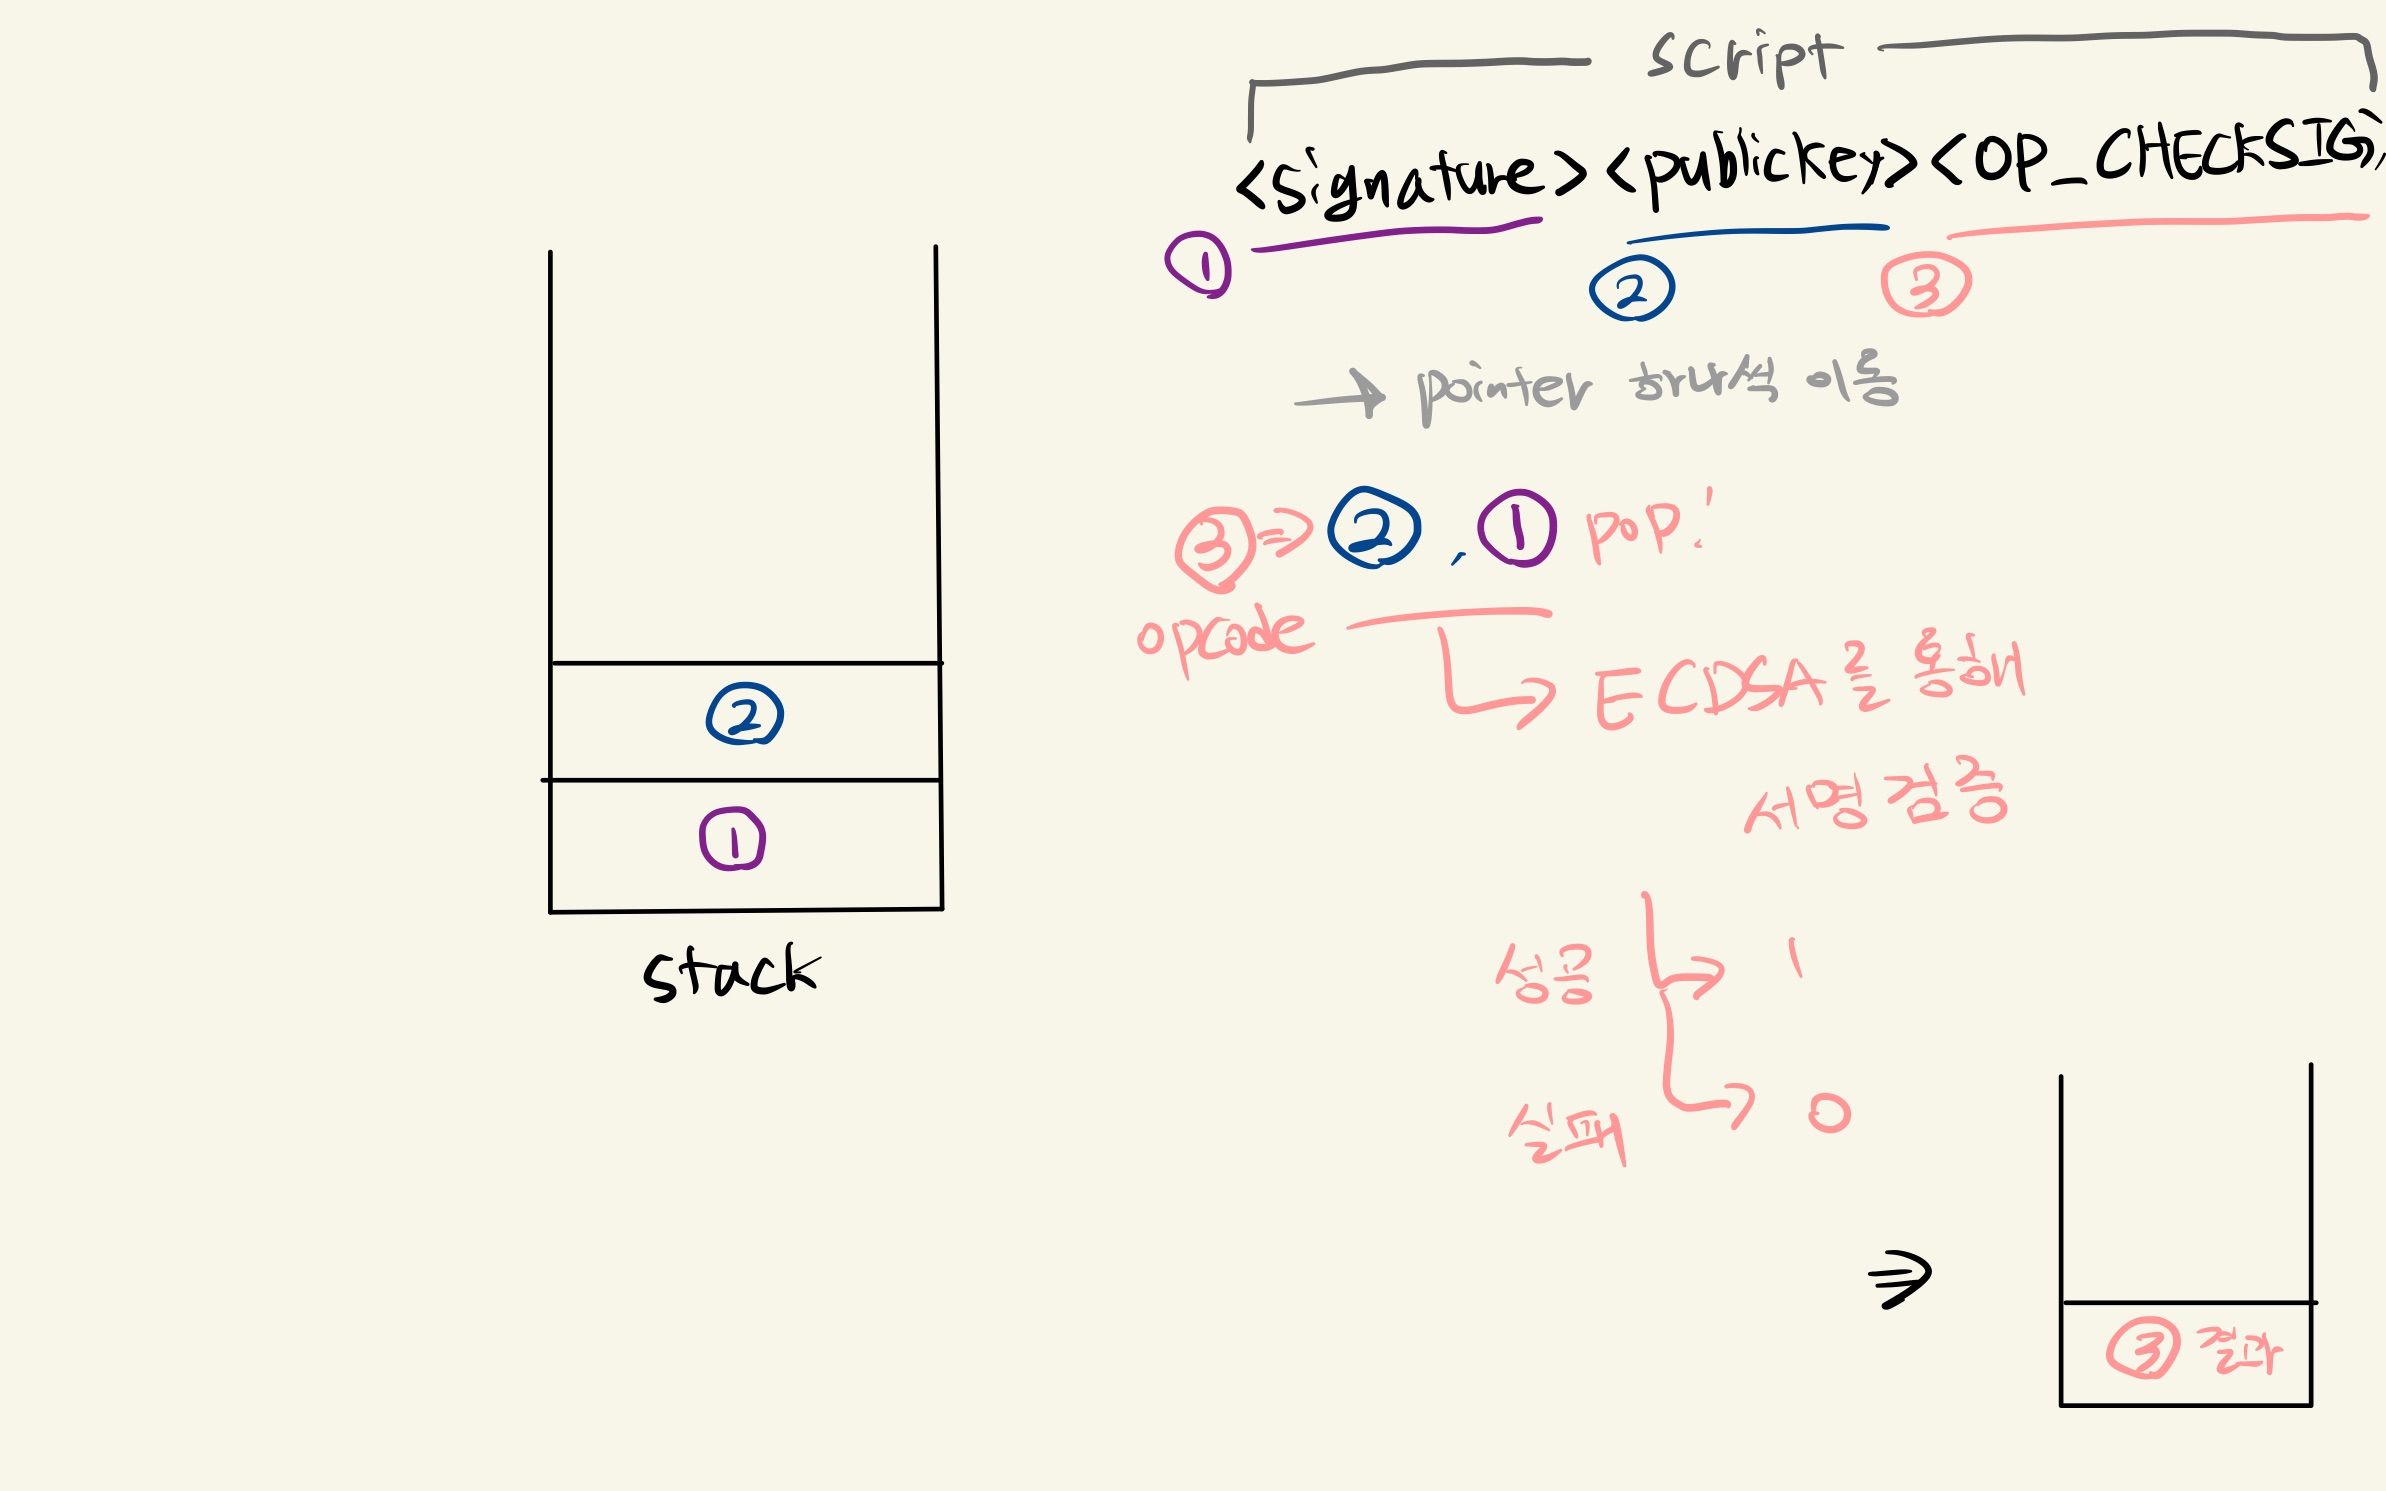 script
<signature> <publickey> <OP_CHECKSIG>
① ② ③
→ pointer 하나씩 이동
③ ⇒ ② , ① pop!
opcode
ECDSA를 통해
서명 검증
성공 1
실패 0
②
①
stack
⇒
③ 결과